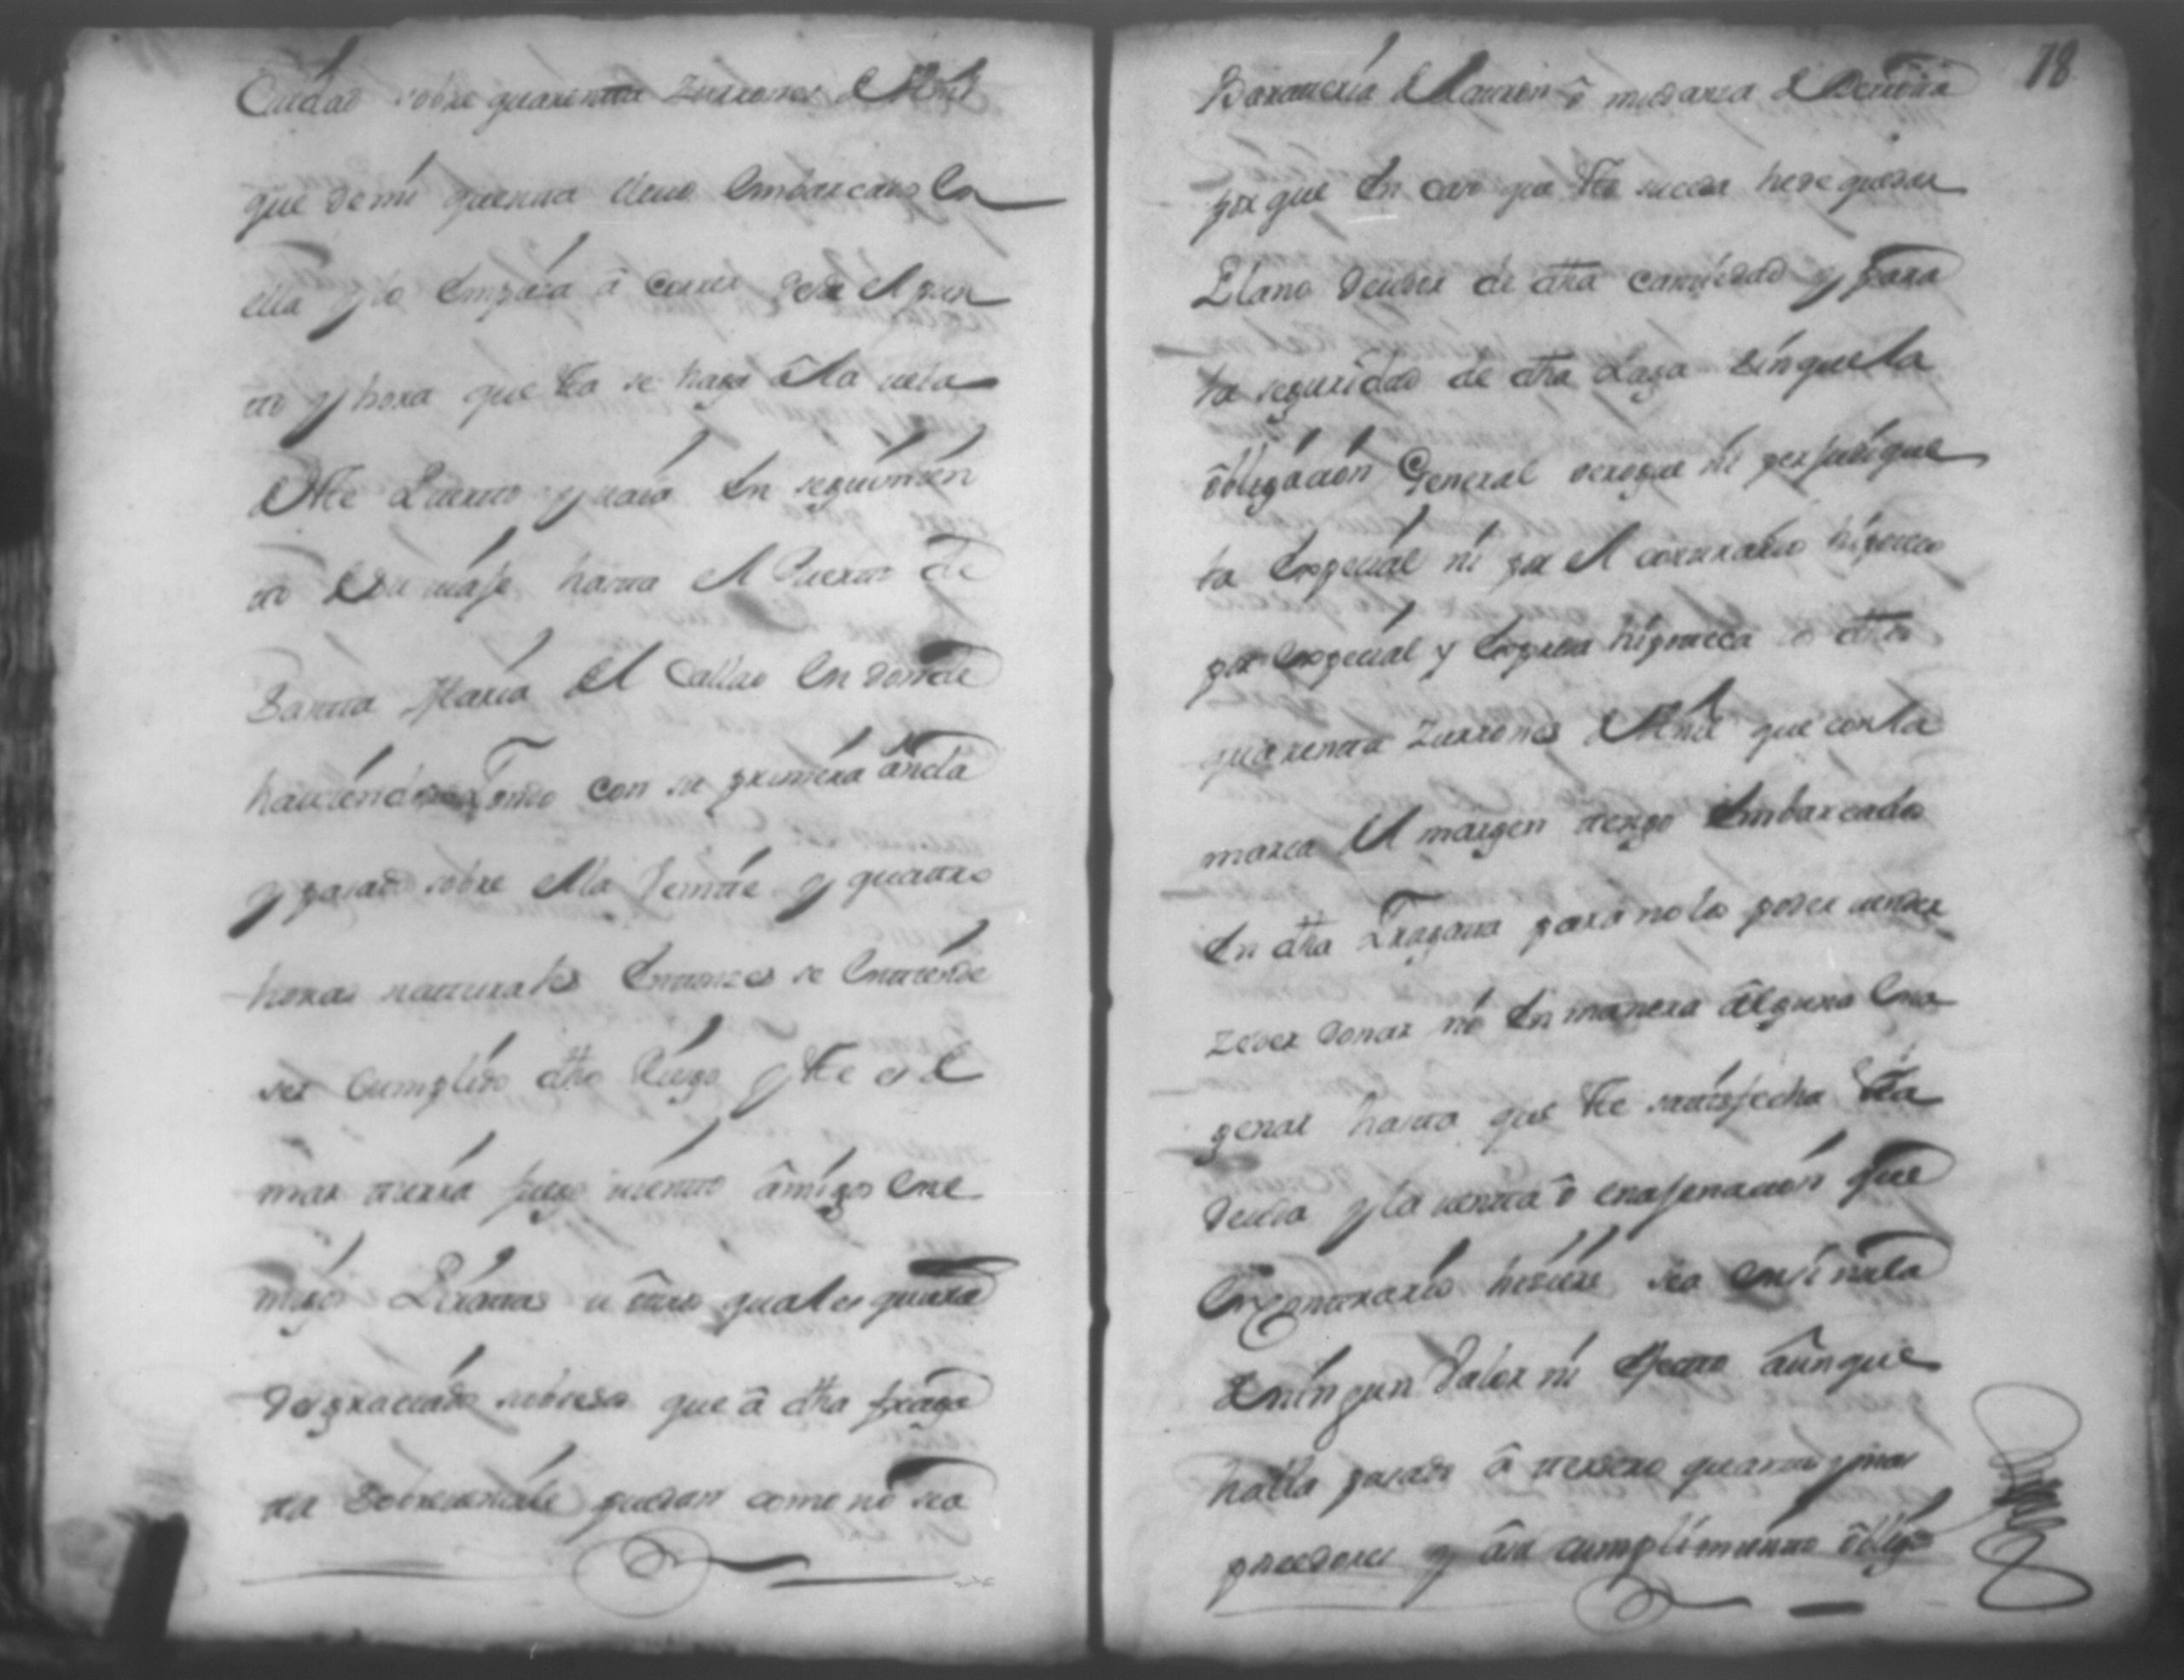 Ciudad sobre quarenta zurrones de Añil
que de mi quenta llevo embarcados en
ella y lo empesara â correr desde el pun
to y hora que esta se haga â la vela
de este Puerto y navegara en seguimien
to de su viaje hasta el Puerto de
Santa Maria del Callao en donde
haviendo fondo con su primera ancla
y pasado sobre ella veinte y quatro
horas naturales entonzes se entiende
ser cumplido dho Riesgo y este es de
mar tierra fuego viento âmigos ene
migos Piratas u ôtro qualesquiera
desgraciado subseso que â dha fraga
ta sobreviniere quedan como no sea
78
Barateria de Patron ô mudanza de Derrota
por que en caso que esta suceda he de quedar
Llano deudor de dha cantidad y para
la seguridad de dha Paga sin que la
ôbligacion General derogue ni perjudique
la especial ni por el contrario hipoteco
por especial y expresa hipoteca los dhos
quarenta zurrones de Añil que con la
marca del margen tengo embarcados
en dha Fragata para no los poder vender
zeder donar ni en manera âlguna ena
genar hasta que este satisfecha esta
deuda y la venta ô enajenacion que
en contrario hiziere sea en si nula
de ningun valor ni efecto âunque
halla pasado â tercero quarto y mas
poseedores y â su cumplimiento ôbligo